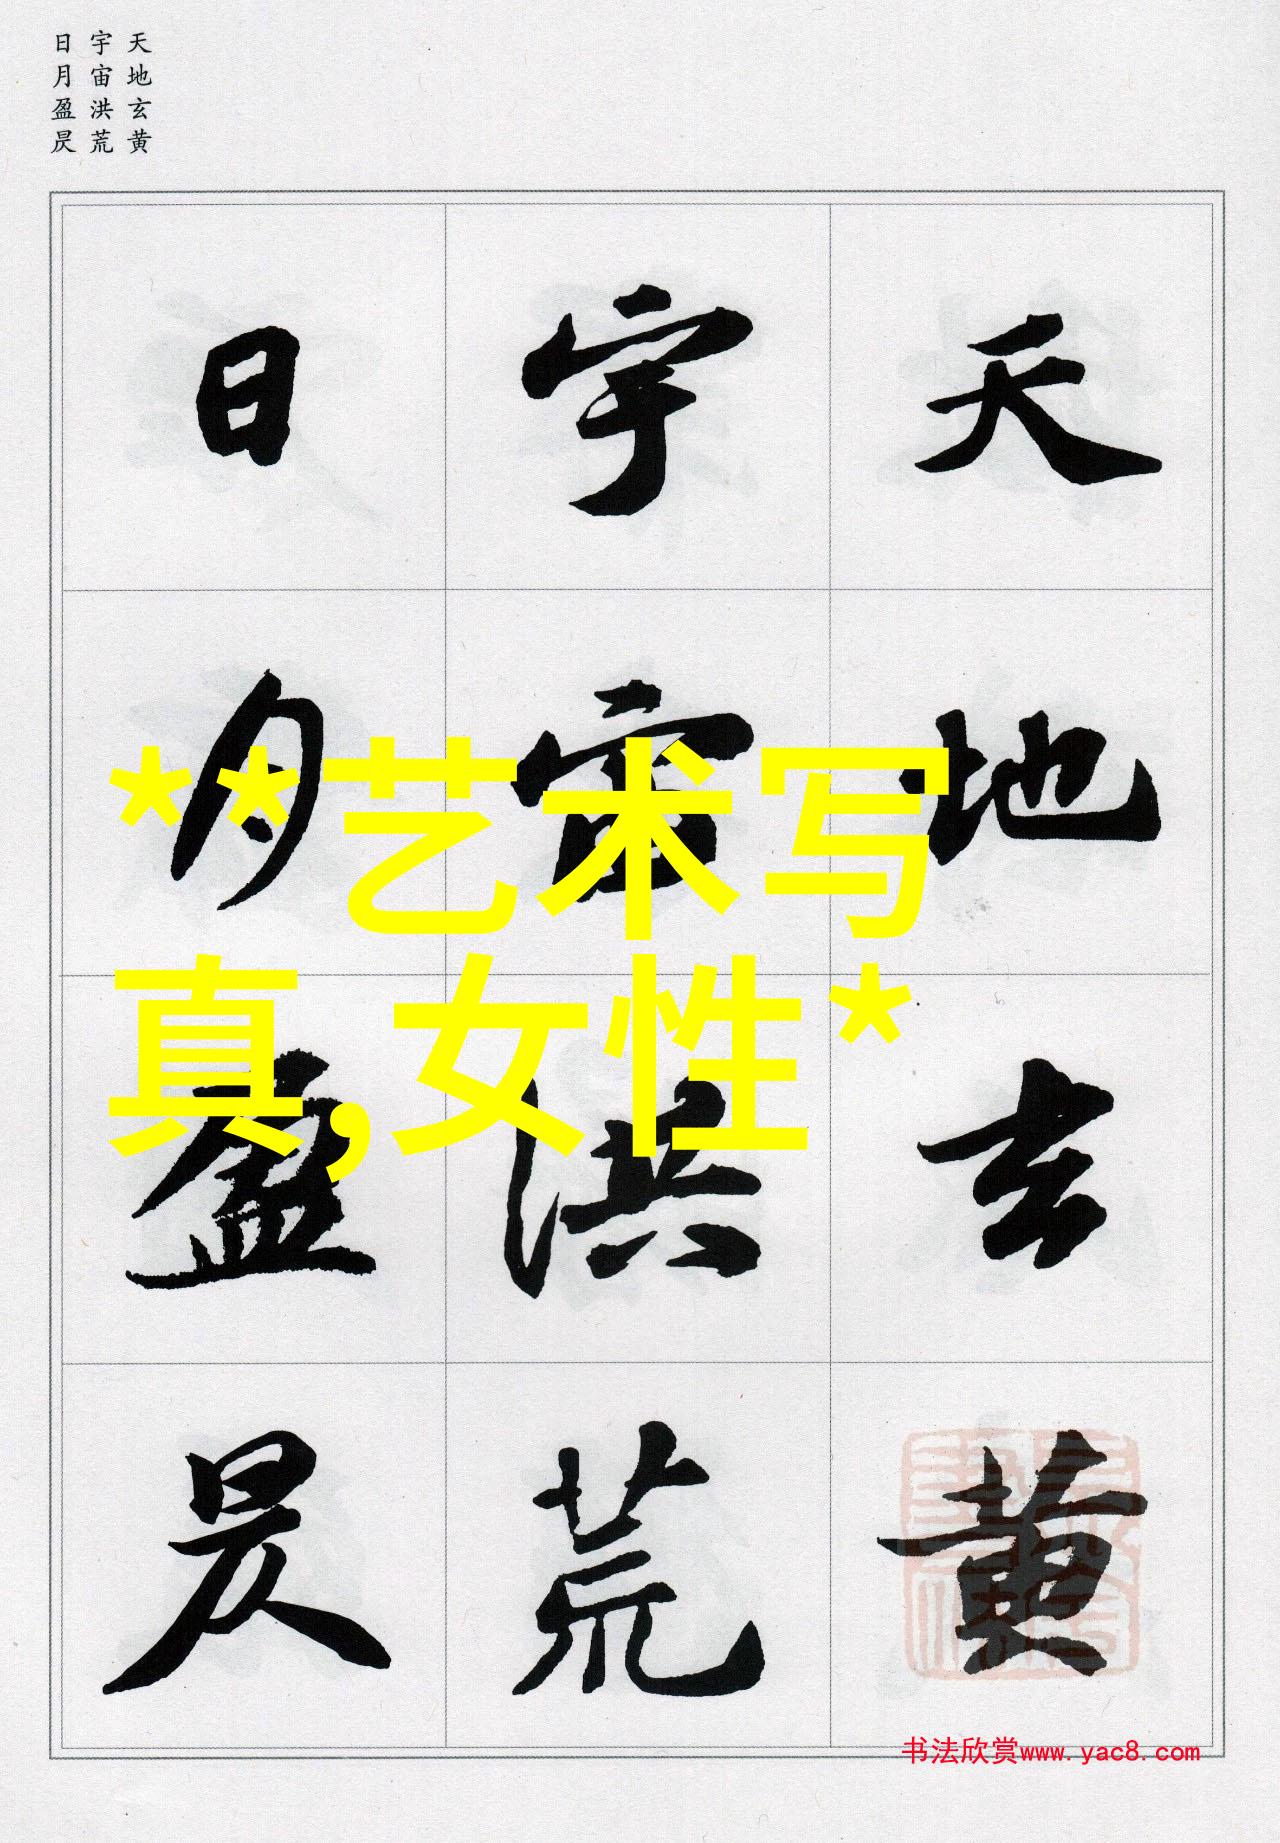 天地玄黄
宇宙洪荒
日月盈昃
天地玄黄
宇宙洪荒
日月盈昃
**艺术写
真,女性*
书法欣赏www.yac8.com